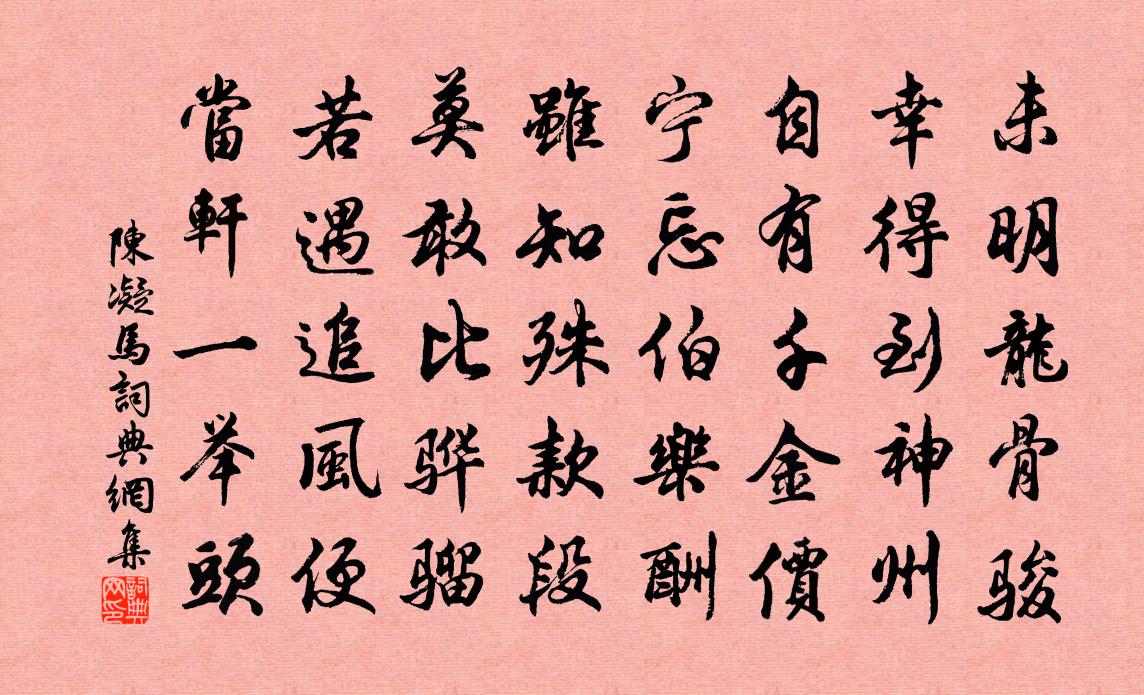 未明龍骨骏
幸得到神州
自有千金價
宁忘伯樂酬
雖知殊款段
莫敢比骅骝
若遇追風便
當軒一举頭
陳凝馬詞典網集
詞典网印